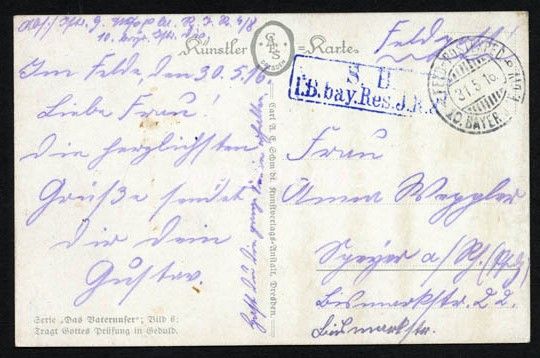 Künstler = Karte
Feldpost
Im Felde, den 30.5.16.
Liebe Frau!
die herzlichsten
Grüße sendet
Dir dein
Gustav.
Carl R. C. Schmidt, Kunstverlags-Anstalt, Dresden.
Serie „Das Vaterunser“; Bild 6:
Tragt Gottes Prüfung in Geduld.
S. B.
I.B. bay. Res. J. R.
31.5.16.
10. BAYER.
Frau
Anna Weppler
Speyer a/Rh. (Pfalz)
Bismarkstr. 22.
Bismarkstr.